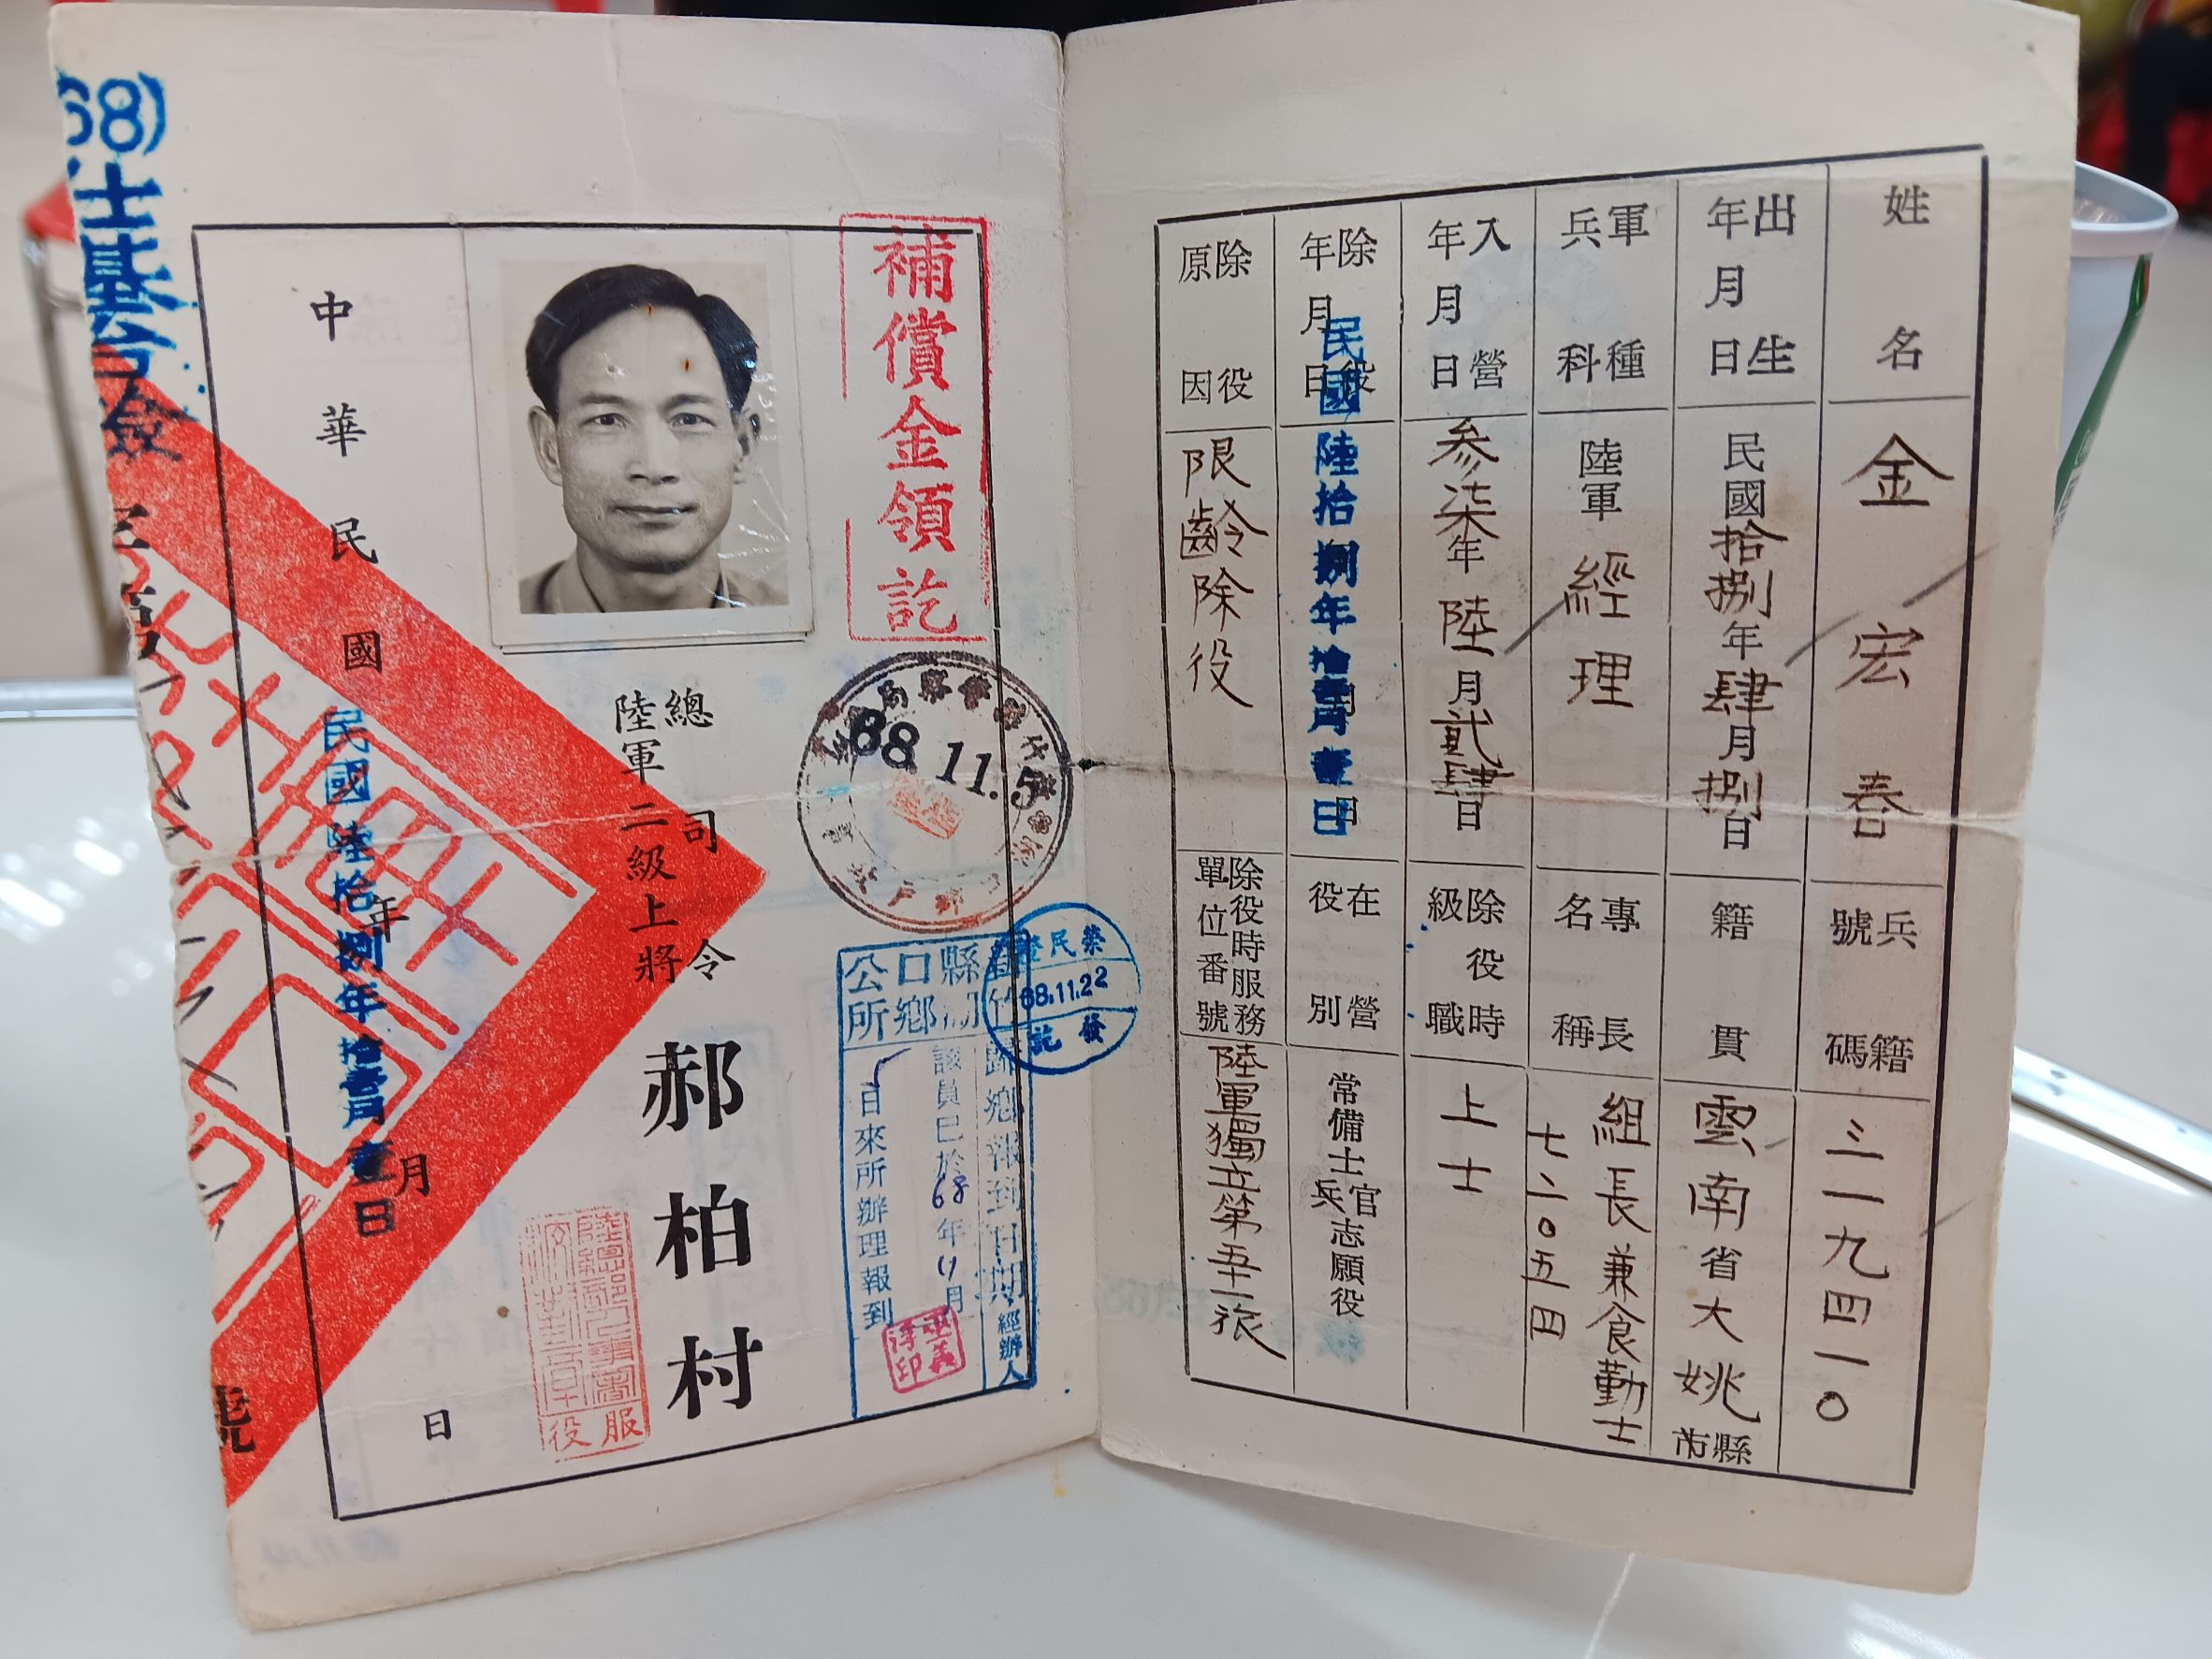 姓名
金宏春
兵籍號碼
三一九四一〇
出生年月日
民國拾捌年肆月捌日
籍貫
雲南省大姚縣市
軍種兵科
陸軍經理
專長名稱
組長兼食勤士
七二〇五四
入營年月日
參柒年陸月貳肆日
除役時級職
上士
除役年月日
民國陸拾捌年拾壹月壹日
在營役別
常備士官兵志願役
除役原因
限齡除役
除役時服務單位番號
陸軍獨立第五十一旅
補償金領訖
68.11.5
榮民證
68.11.22
發訖
新竹縣湖口鄉公所
歸鄉報到日期
經辦人
該員已於68年11月
日來所辦理報到
總司令
陸軍二級上將
郝柏村
服役
中華民國年月日
民國陸拾捌年拾壹月壹日
68)
號